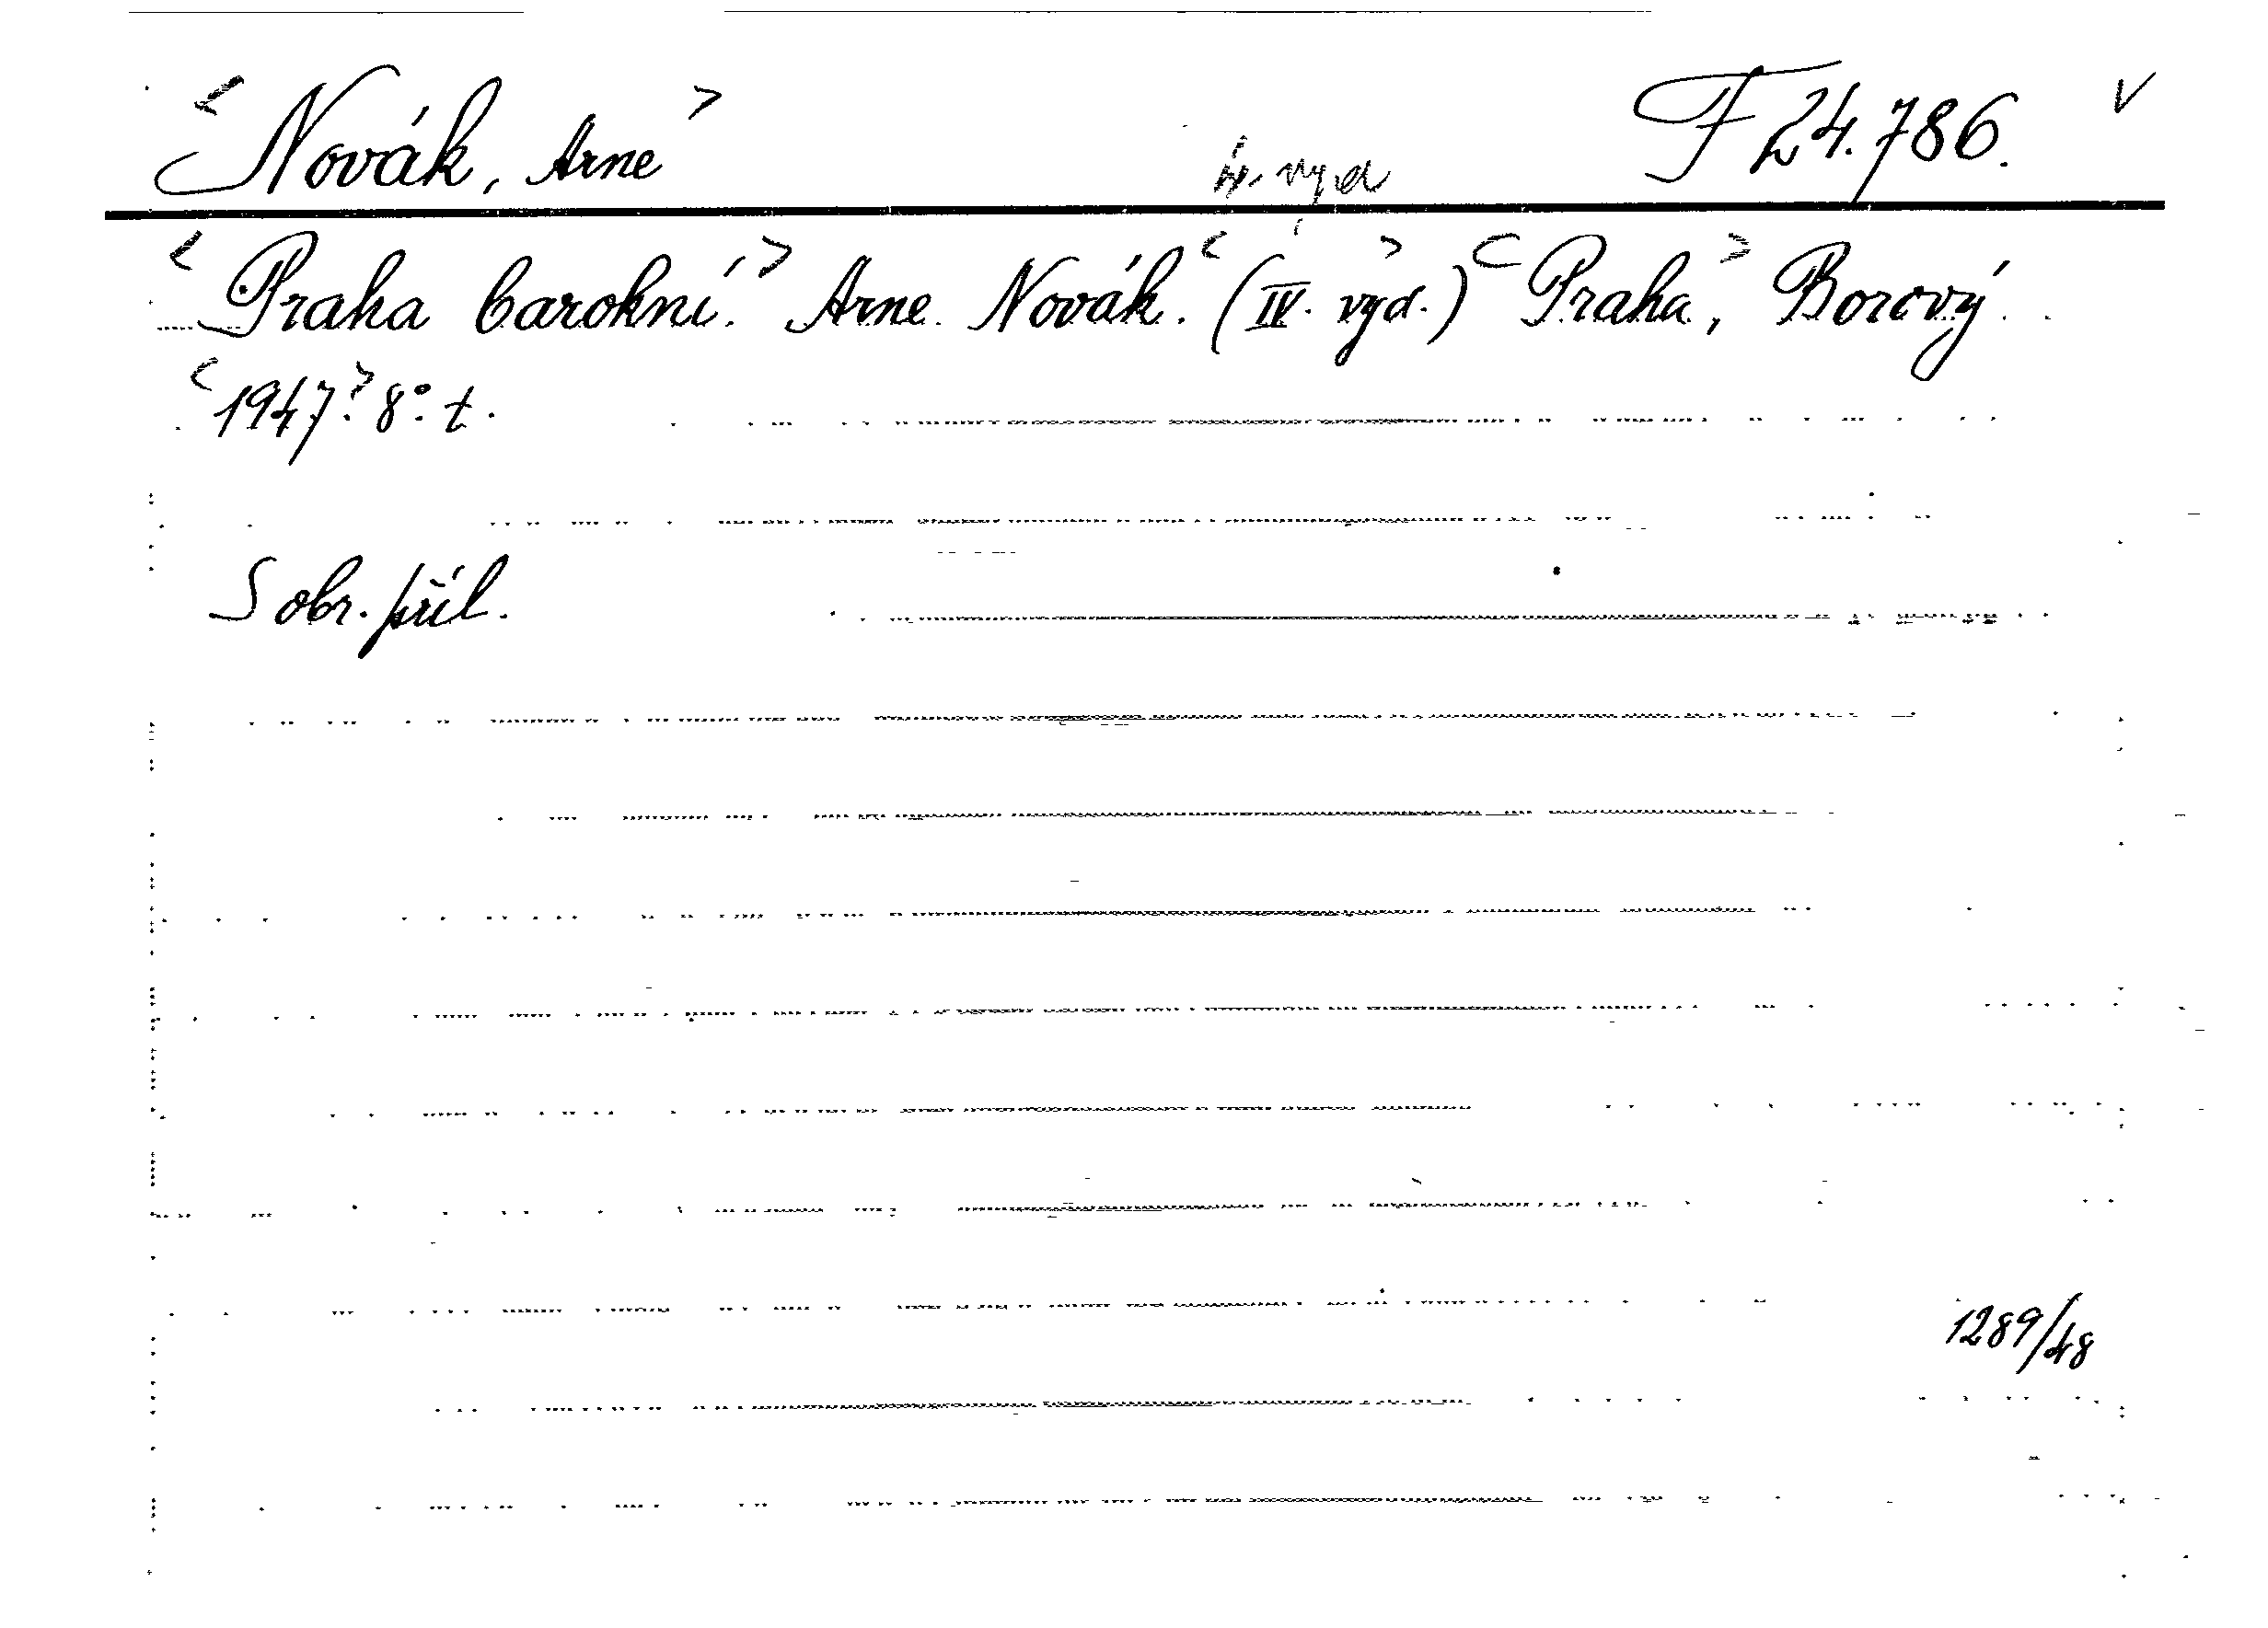 <Novák, Arne> F 24.786. ✓
4. vyd
<Praha barokní.> Arne Novák. <(IV. vyd.)> <Praha,> Borový
<1947.> 8°. t.
S obr. příl.
1289/48